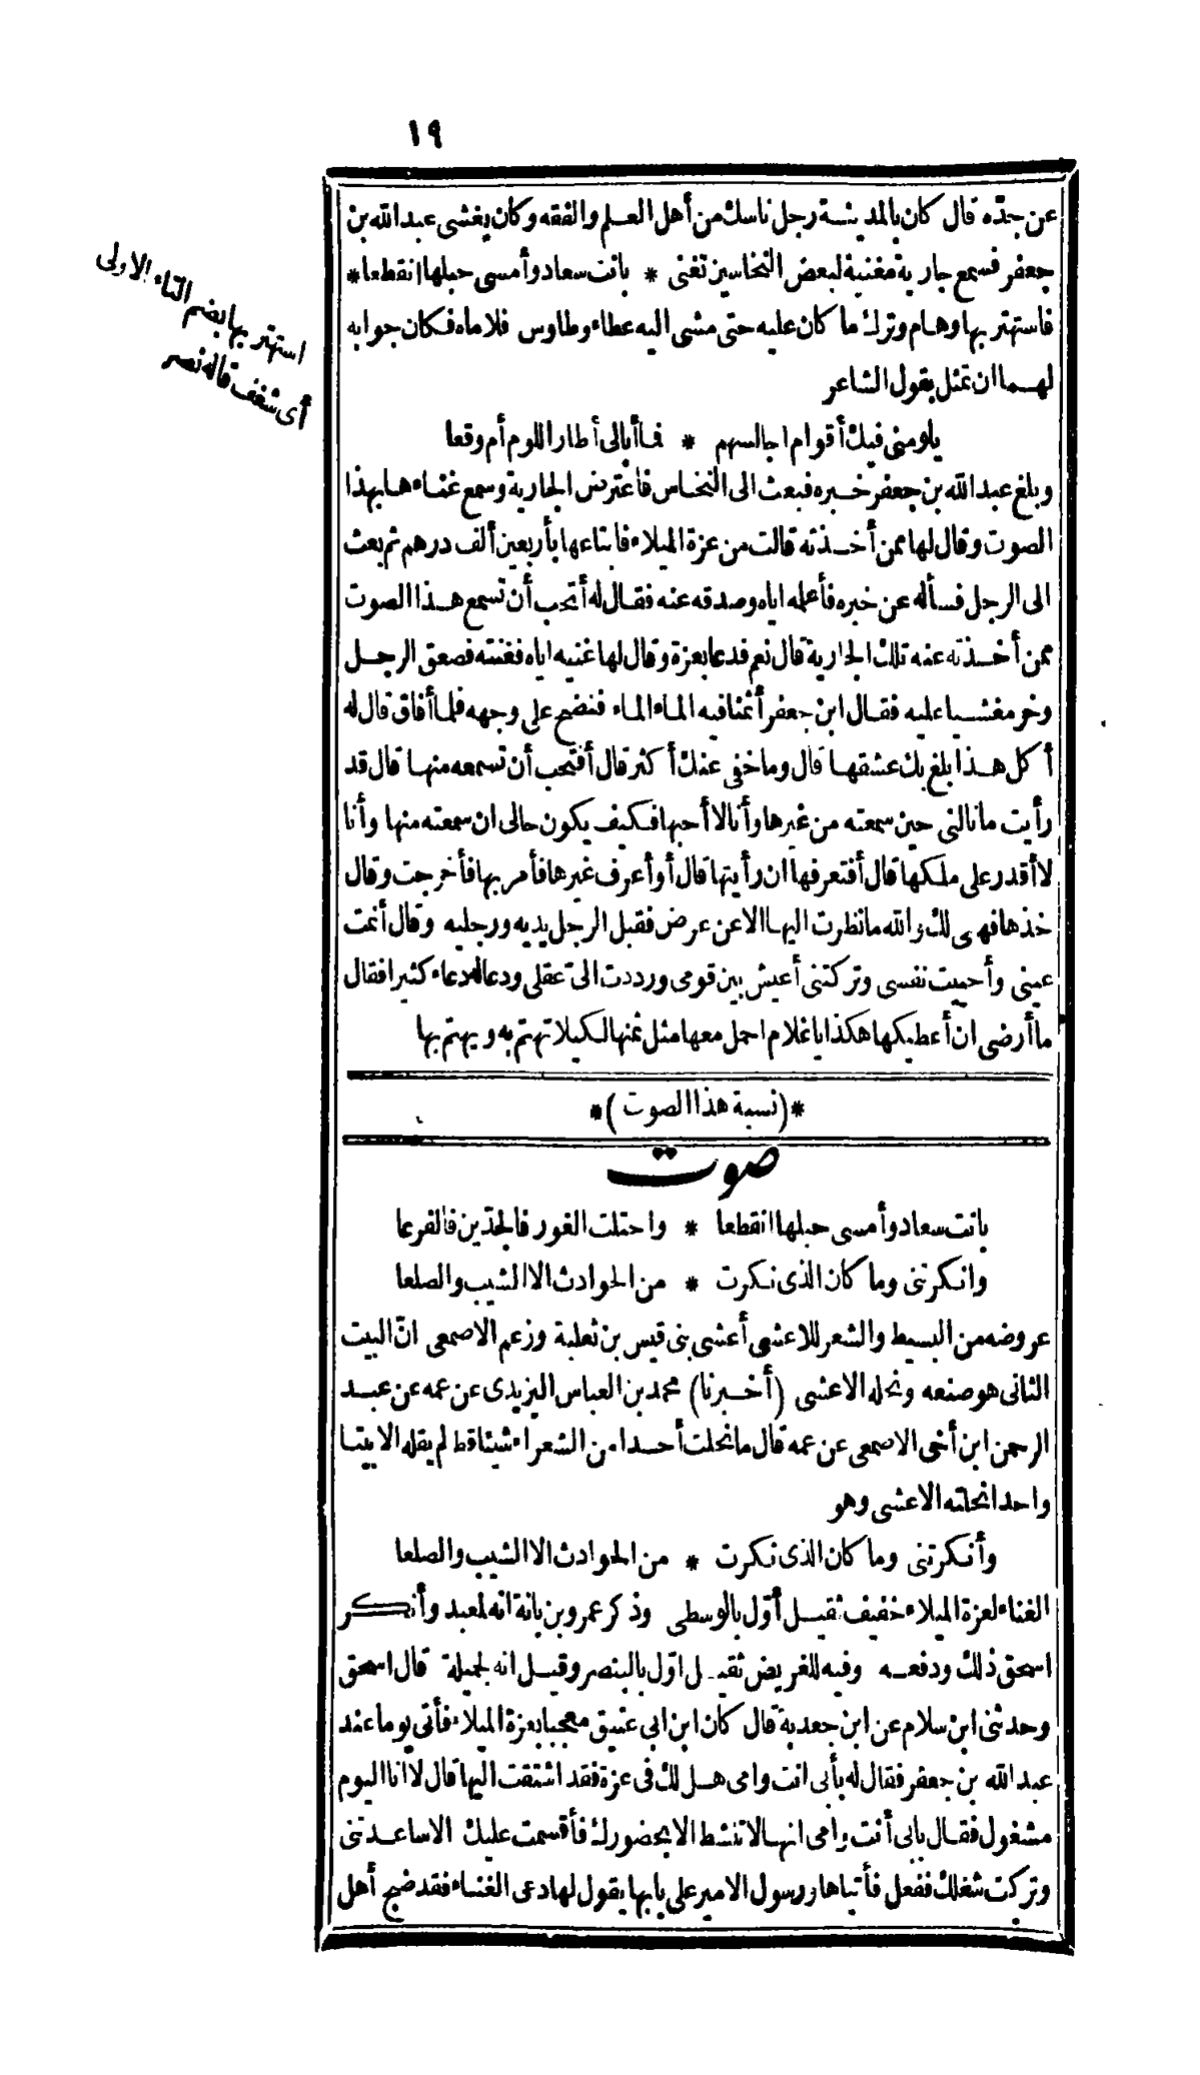 ١٩
عن جدّه قال كان بالمدينة رجل ناسك من أهل العلم والفقه وكان يغشى عبد الله بن
جعفر فسمع جارية مغنية لبعض النخاسين تغنى * بانت سعاد وأمسى حبلها انقطعا *
فاستهتر بها وهام وترك ما كان عليه حتى مشى اليه عطاء وطاوس فلاماه فكان جوابه
لهما ان تمثل بقول الشاعر
يلومنى فيك أقوام اجالسهم * فما أبالى أطار اللوم أم وقعا
وبلغ عبد الله بن جعفر خبره فبعث الى النخاس فاعترض الجارية وسمع غناءها بهذا
الصوت وقال لها ممن أخذته قالت من عزة الميلاء فابتاعها بأربعين ألف درهم ثم بعث
الى الرجل فسأله عن خبره فأعلمه اياه وصدقه عنه فقال له أتحب أن تسمع هذا الصوت
ممن أخذته عنه تلك الجارية قال نعم فدعا بعزة وقال لها غنيه اياه فغنته فصعق الرجل
وخر مغشيا عليه فقال ابن جعفر أثمنا فيه الماء الماء فنضح على وجهه فلما أفاق قال له
أكل هذا بلغ بك عشقها قال وما خفى عنك أكثر قال أفتحب أن تسمعه منها قال قد
رأيت ما نالنى حين سمعته من غيرها وأنا لا أحبها فكيف يكون حالى ان سمعته منها وأنا
لا أقدر على ملكها قال أفتعرفها ان رأيتها قال أو أعرف غيرها فأمر بها فأخرجت وقال
خذها فهى لك والله ما نظرت اليها الا عن عرض فقبل الرجل يديه ورجليه وقال أنمت
عينى وأحييت نفسى وتركتنى أعيش بين قومى ورددت الىّ عقلى ودعا له دعاء كثيرا فقال
ما أرضى ان أعطيكها هكذا يا غلام احمل معها مثل ثمنها لكيلا تهتم به ويهتم بها
*(نسبة هذا الصوت)*
صوت
بانت سعاد وأمسى حبلها انقطعا * واحتلت الغور فالجدّين فالفرعا
وانكرتنى وما كان الذى نكرت * من الحوادث الا الشيب والصلعا
عروضه من البسيط والشعر للاعشى أعشى بنى قيس بن ثعلبة وزعم الاصمعى انّ البيت
الثانى هو صنعه ونحله الاعشى (أخبرنا) محمد بن العباس اليزيدى عن عمه عن عبد
الرحمن ابن أخى الاصمعى عن عمه قال ما نحلت أحدا من الشعراء شيئا قط لم يقله الا بيتا
واحدا نحلته الاعشى وهو
وأنكرتنى وما كان الذى نكرت * من الحوادث الا الشيب والصلعا
الغناء لعزة الميلاء خفيف ثقيل أوّل بالوسطى وذكر عمرو بن بانة انه لمعبد وأنكر
اسحق ذلك ودفعه وفيه للغريض ثقيل اوّل بالبنصر وقيل انه لجميلة قال اسحق
وحدثنى ابن سلام عن ابن جعدبة قال كان ابن ابى عتيق معجبا بعزة الميلاء فأتى يوما عند
عبد الله بن جعفر فقال له بأبى انت وامى هل لك فى عزة فقد اشتقت اليها قال لا انا اليوم
مشغول فقال بابى أنت وامى انها لا تنشط الا بحضورك فأقسمت عليك الا ساعدتنى
وتركت شغلك ففعل فأتياها ورسول الامير على بابها يقول لها دعى الغناء فقد ضج أهل
استهتر بها بضم التاء الاولى
أى شغف قاله نصر